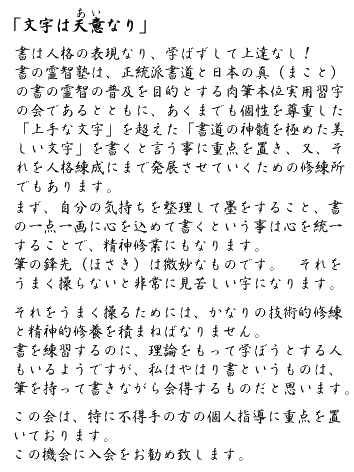 「文字は天意なり」
あい
書は人格の表現なり、学ばずして上達なし！
書の霊智塾は、正統派書道と日本の真（まこと）
の書の霊智の普及を目的とする肉筆本位実用習字
の会であるとともに、あくまでも個性を尊重した
「上手な文字」を超えた「書道の神髄を極めた美
しい文字」を書くと言う事に重点を置き、又、そ
れを人格練成にまで発展させていくための修練所
でもあります。
まず、自分の気持ちを整理して墨をすること、書
の一点一画に心を込めて書くという事は心を統一
することで、精神修業にもなります。
筆の鋒先（ほさき）は微妙なものです。　それを
うまく操らないと非常に見苦しい字になります。
それをうまく操るためには、かなりの技術的修練
と精神的修養を積まねばなりません。
書を練習するのに、理論をもって学ぼうとする人
もいるようですが、私はやはり書というものは、
筆を持って書きながら会得するものだと思います。
この会は、特に不得手の方の個人指導に重点を置
いております。
この機会に入会をお勧め致します。